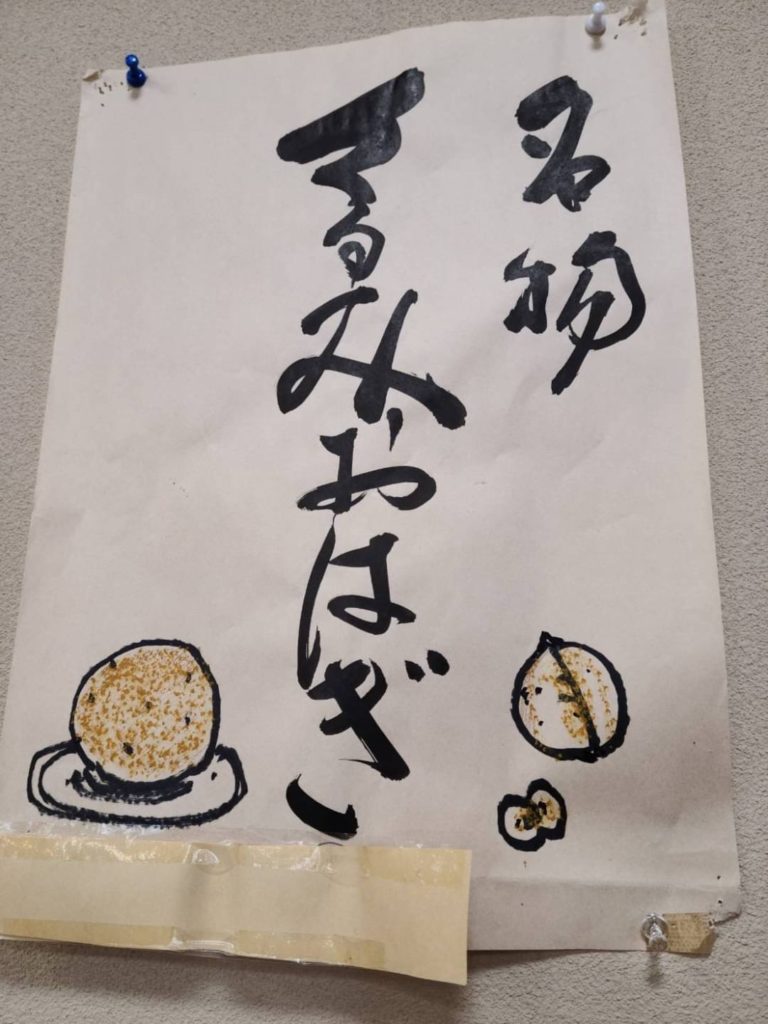 名物
くるみおはぎ